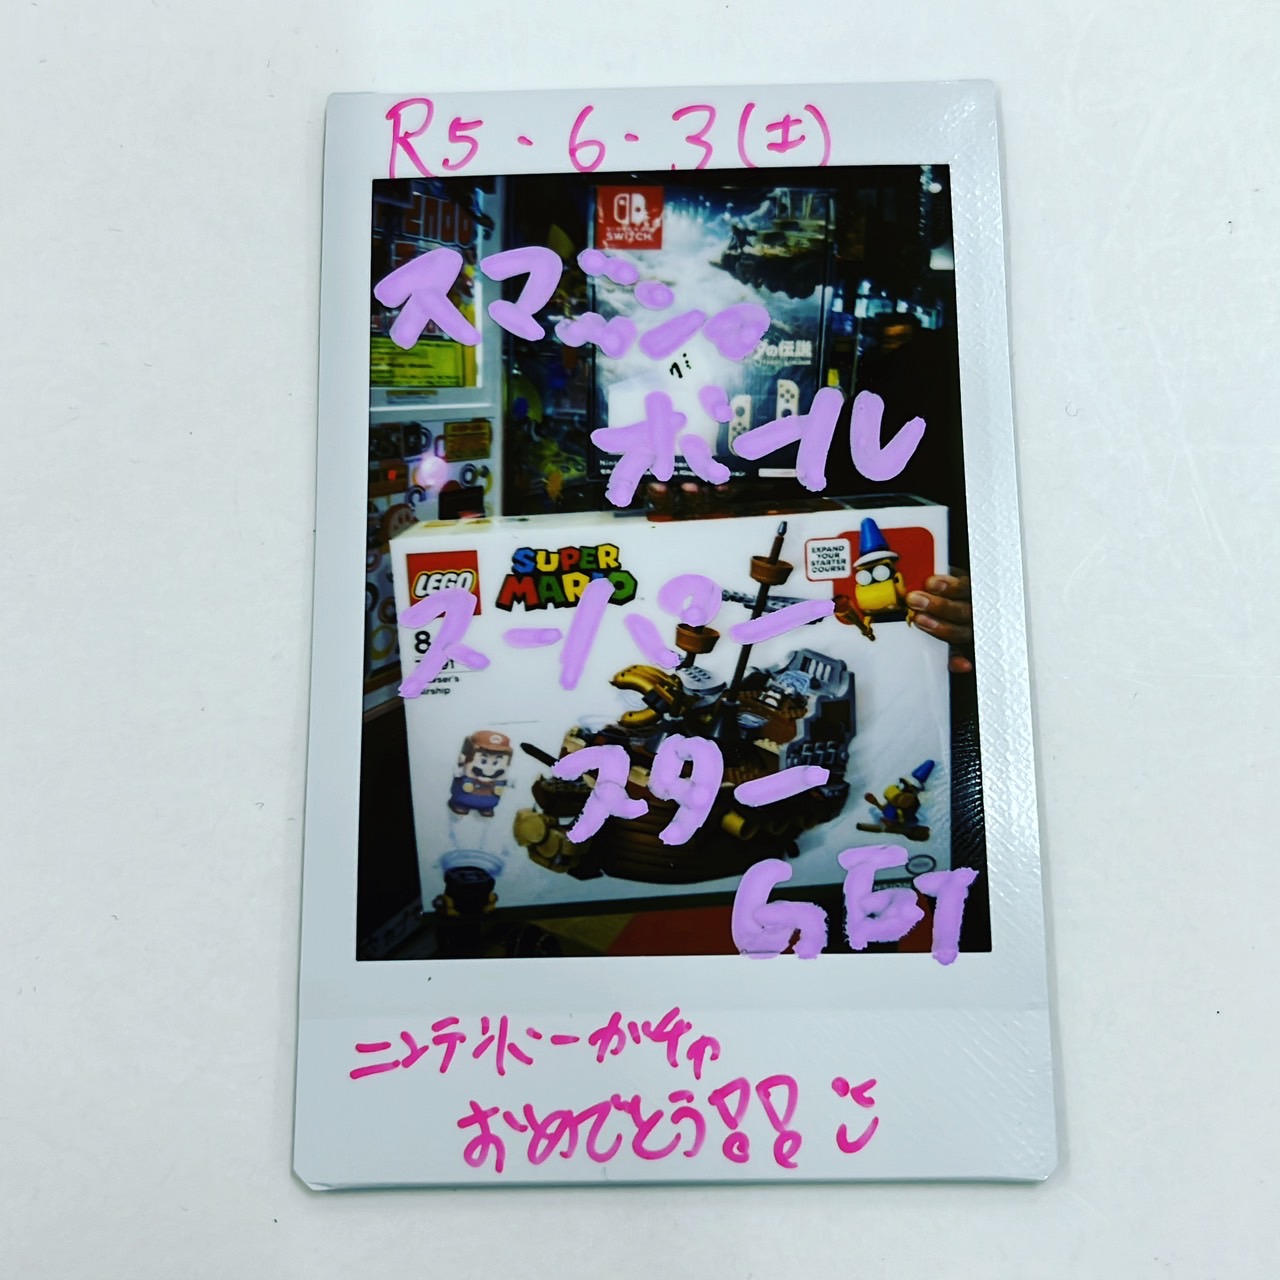 R5・6・3(土)
SWITCH
スマッシュ
の伝説
ボール
LEGO
SUPER
MARIO
EXPAND
YOUR
STARTER
COURSE
スーパー
8
スター
GET
ニンテンドーガチャ
おめでとう!!